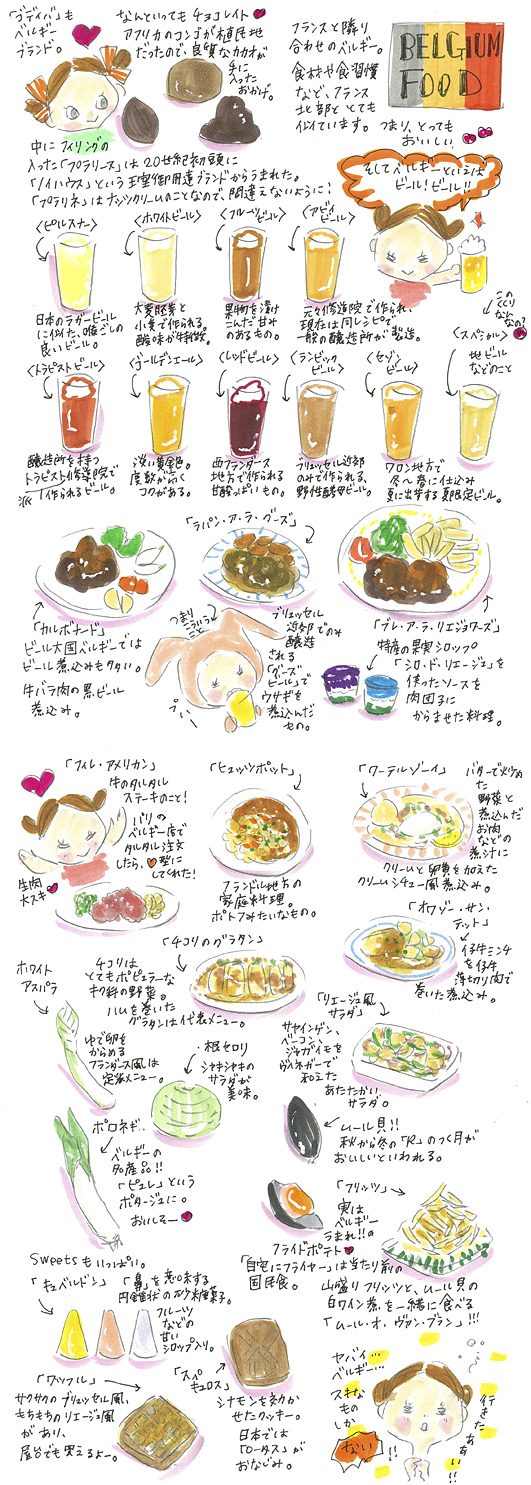 「ゴディバ」も
ベルギー
ブランド。
なんといってもチョコレイト
アフリカのコンゴが植民地
だったので、良質なカカオが
手に
入った
おかげ。
中にフィリングの
入った「プラリーヌ」は20世紀初頭に
「ノイハウス」という王室御用達ブランドからうまれた。
「プラリネ」はナッツクリームのことなので、間違えないように!
フランスと隣り
合わせのベルギー。
食材や食習慣
など、フランス
北部ととても
似ています。つまり、とっても
おいしい
BELGIUM
FOOD
そしてベルギーといえば
ビール!ビール!!
このくくり
なんなの?
〈ピルスナー〉
日本のラガービール
に似た、喉ごしの
良いビール。
〈ホワイトビール〉
大麦麦芽と
小麦で作られる。
酸味が特徴。
〈フルーツビール〉
果物を漬け
こんだ甘み
のあるもの。
〈アビイビール〉
元々修道院で作られ、
現在は同レシピで
一般の醸造所が製造。
〈スペシャル〉
地ビール
などのこと
〈トラピストビール〉
醸造所を持つ
トラピスト修道院で
作られるビール。
〈ゴールデンエール〉
淡い黄金色。
度数が高く
コクがある。
〈レッドビール〉
西フランダース
地方で作られる
甘酸っぱいもの。
〈ランビックビール〉
ブリュッセル近郊
のみで作られる、
野性酵母ビール。
〈セゾンビール〉
ワロン地方で
冬〜春に仕込み
夏に出荷する夏限定ビール。
「カルボナード」
ビール大国ベルギーでは
ビール煮込みも多い。
牛バラ肉の黒ビール
煮込み。
「ラパン・ア・ラ・グーズ」
つまり
こういう
こと
プハー
ブリュッセル
近郊でのみ
醸造
される
「グーズ
ビール」で
ウサギを
煮込んだ
もの。
「ブレ・ア・ラ・リエジョワーズ」
特産の果実シロップ
「シロ・ド・リエージュ」を
使ったソースを
肉団子に
からませた料理。
「フィレ・アメリカン」
牛のタルタル
ステーキのこと!
パリの
ベルギー店で
タルタル注文
したら、♥型に
してくれた!
生肉
大スキ
「ヒュッツポット」
フランドル地方の
家庭料理。
ポトフみたいなもの。
「ワーテルゾーイ」
バターで炒めた
野菜と
煮込んだ
お肉
などの
煮汁に
クリームと卵黄を加えた
クリームシチュー風煮込み。
「オワゾー・サン・
テット」
仔牛ミンチ
を仔牛
薄切り肉で
巻いた煮込み。
「チコリのグラタン」
チコリは
とてもポピュラーな
キク科の野菜。
ハムを巻いた
グラタンは代表メニュー。
ホワイト
アスパラ
ゆで卵を
からめる
フランダース風は
定番メニュー。
・根セロリ
シャキシャキの
サラダが
美味。
「リエージュ風
サラダ」
サヤインゲン、
ベーコン、
ジャガイモを
ヴィネガーで
和えた
あたたかい
サラダ。
ポロネギ、
ベルギーの
名産品!!
「ピュレ」という
ポタージュに。
おいしそー
ムール貝!!
秋から冬の「R」のつく月が
おいしいといわれる。
「フリッツ」
実は
ベルギー
うまれ!!の
フライドポテト
「自宅にフライヤー」は当たり前の
国民食。
山盛りフリッツと、ムール貝の
白ワイン煮を一緒に食べる
「ムール・オ・ヴァン・ブラン」!!!
Sweetsもいっぱい。
「キュベルドン」
「鼻」を意味する
円錐状の砂糖菓子。
フルーツ
などの
甘い
シロップ入り。
「ワッフル」
サクサクのブリュッセル風、
もちもちのリエージュ風
があり、
屋台でも買えるよー。
「スペ
キュロス」
シナモンを効か
せたクッキー。
日本では
「ロータス」が
おなじみ。
ヤバイ…
ベルギー…
スキな
もの
しか
ない!!
行きた
ああ
い!!